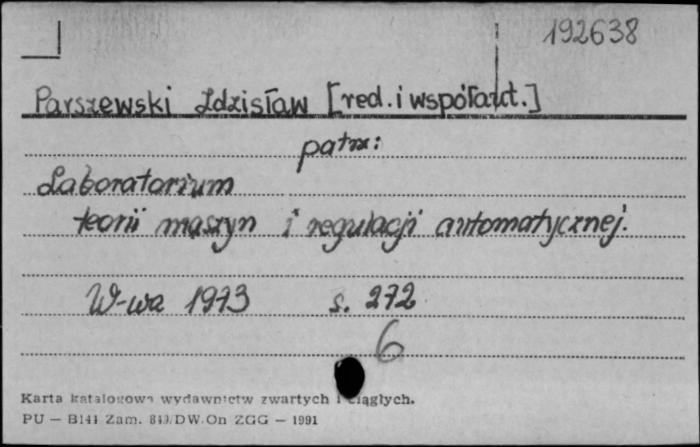 192638
Parszewski Zdzisław [red. i współaut.]
patrz:
Laboratorium
teorii maszyn i regulacji automatycznej.
W-wa 1973 s. 272
6
Karta katalogowa wydawnictw zwartych i ciągłych.
PU — B141 Zam. 840/DW On ZGG — 1991